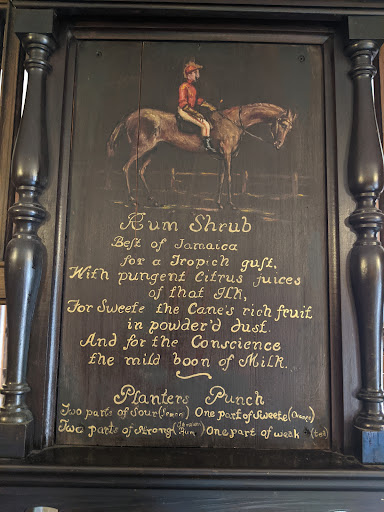 Rum Shrub
Best of Jamaica
for a Tropich gust,
With pungent Citrus juices
of that Ilk,
For Sweete the Cane's rich fruit
in powder'd dust.
And for the Conscience
the mild boon of Milk.
Planters Punch
Two parts of Sour (Lemon) One part of Sweete
Two parts of Strong (Jamaican Rum) One part of weak